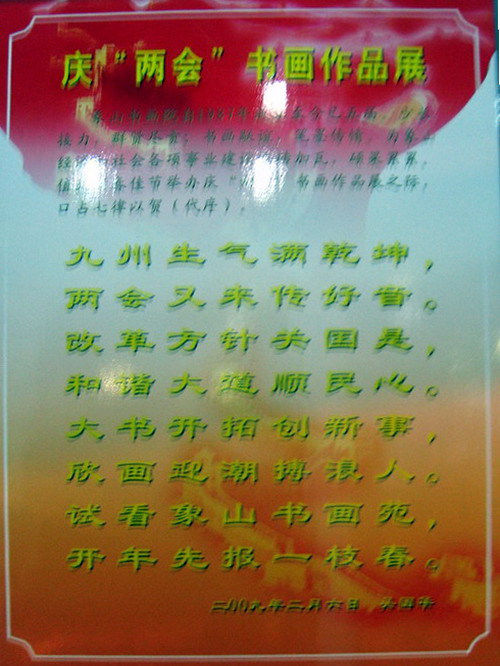 庆“两会”书画作品展
象山书画院自1987年
接力，群贤尽肯；书画联谊，笔墨传情，为象山
经济社会各项事业建设加瓦，硕果累累，
值 春佳节举办庆“两会”书画作品展之际，
口占七律以贺（代序）：
九州生气满乾坤，
两会又来传好音。
改革方针关国是，
和谐大道顺民心。
大书开拓创新事，
欣画迎潮搏浪人。
试看象山书画苑，
开年先报一枝春。
二00九年二月六日